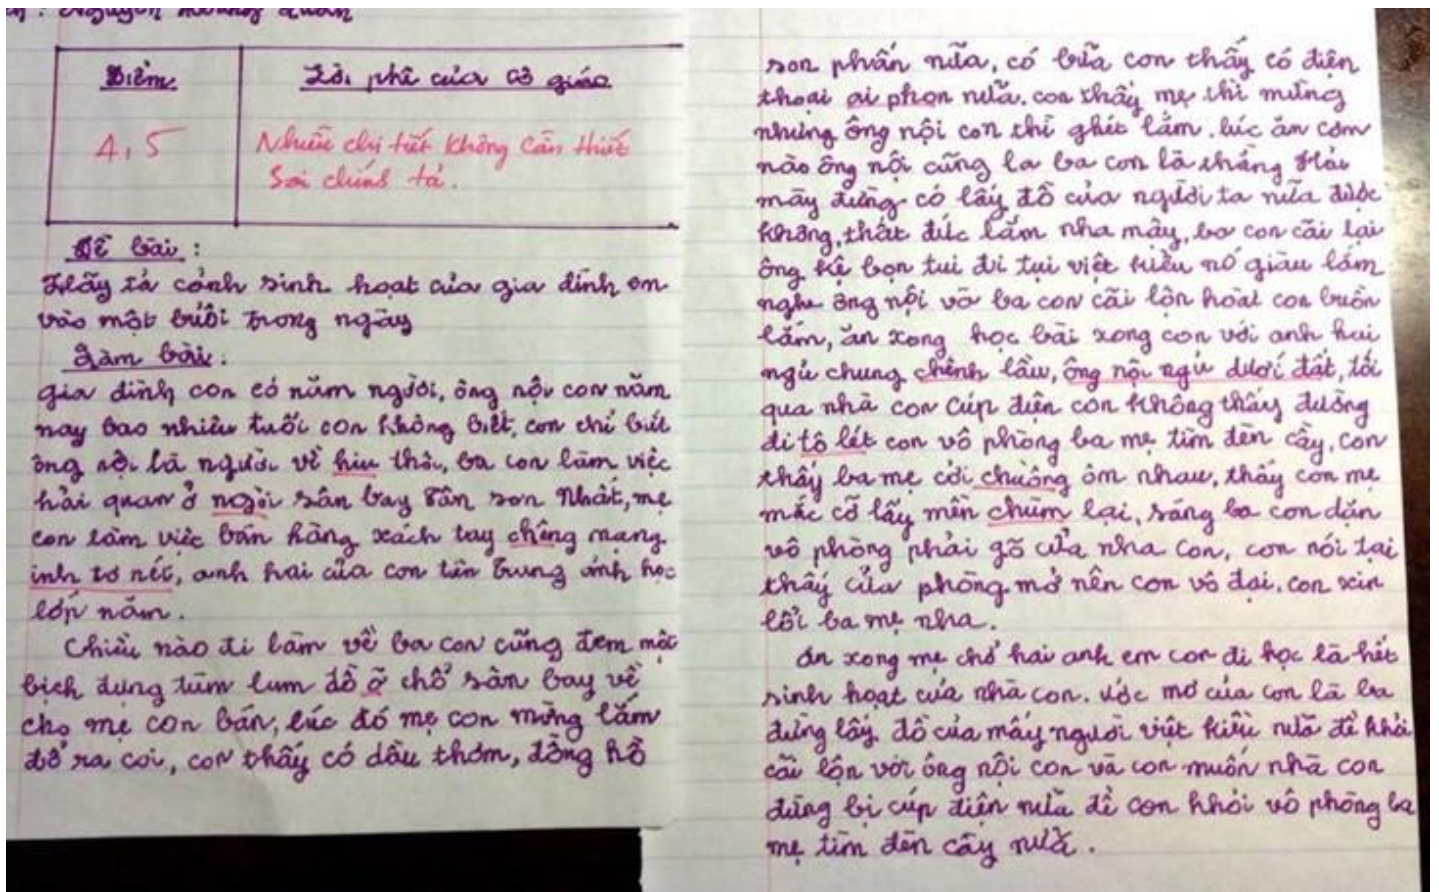 Nguyễn Hoàng Quân
Điểm
Lời phê của cô giáo
4,5
Nhiều chi tiết không cần thiết
Sai chính tả.
Đề bài :
Hãy tả cảnh sinh hoạt của gia đình em
vào một buổi trong ngày
Làm bài :
gia đình con có năm người, ông nội con năm
nay bao nhiêu tuổi con không biết, con chỉ biết
ông nội là người về hiu thôi, ba con làm việc
hải quan ở ngoài sân bay Tân Sơn Nhất, mẹ
con làm việc bán hàng xách tay chêng mạng
inh tơ nét, anh hai của con tên Trung ảnh học
lớp năm.
Chiều nào đi làm về ba con cũng đem một
bịch đựng tùm lum đồ ỡ chổ sân bay về
cho mẹ con bán, lúc đó mẹ con mừng lắm
đổ ra coi, con thấy có dầu thơm, đồng hồ
son phấn nữa, có bữa con thấy có điện
thoại ai phon nữa. con thấy mẹ thì mừng
nhưng ông nội con thì ghét lắm. lúc ăn cơm
nào ông nội cũng la ba con là thằng Hải
mầy đừng có lấy đồ của người ta nữa được
không, thất đức lắm nha mầy, ba con cãi lại
ông kệ bọn tui đi tụi việt kiều nó giàu lắm
nghe ông nội và ba con cãi lộn hoài con buồn
lắm, ăn xong học bài xong con với anh hai
ngủ chung chênh lầu, ông nội ngủ dưới đất, tối
qua nhà con cúp điện con không thấy đường
đi tô lét con vô phòng ba mẹ tìm đèn cầy, con
thấy ba mẹ cởi chuồng ôm nhau, thấy con mẹ
mắc cỡ lấy mền chùm lại, sáng ba con dặn
vô phòng phải gõ cửa nha con, con nói tại
thấy cửa phòng mở nên con vô đại, con xin
lổi ba mẹ nha.
ăn xong mẹ chở hai anh em con đi học là hết
sinh hoạt của nhà con. ước mơ của con là ba
đừng lấy đồ của mấy người việt kiều nữa để khỏi
cãi lộn với ông nội con và con muốn nhà con
đừng bị cúp điện nữa để con khỏi vô phòng ba
mẹ tìm đèn cầy nữa.